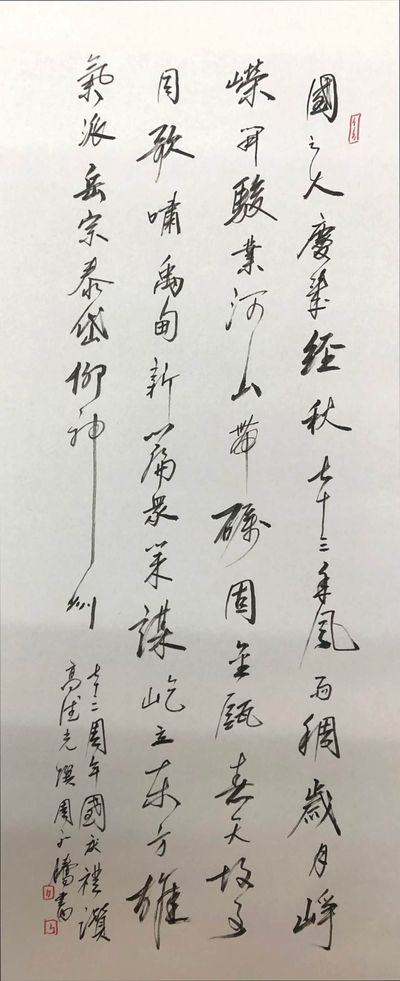 國之大慶幾經秋七十三年風雨稠歲月崢
嶸開駿業河山帶礪固金甌春天故事
目歌嘯禹甸新篇眾策謀屹立東方雄
氣派岳宗泰岱仰神州
七十二周年國慶禮讚
高德光撰周子騰書